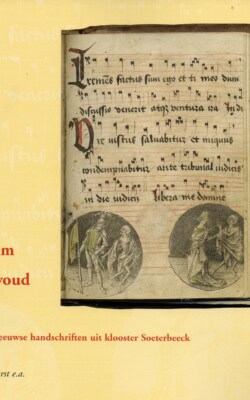 Tremēs factus sum ego et ti meo dum
discussio venerit atqꝫ ventura ira In di
Vix iustus saluabitur et
condempnabitur ante tribunal iudicis
in die iudicii libera me domine
m
voud
eeuwse handschriften uit klooster Soeterbeeck
rst e.a.